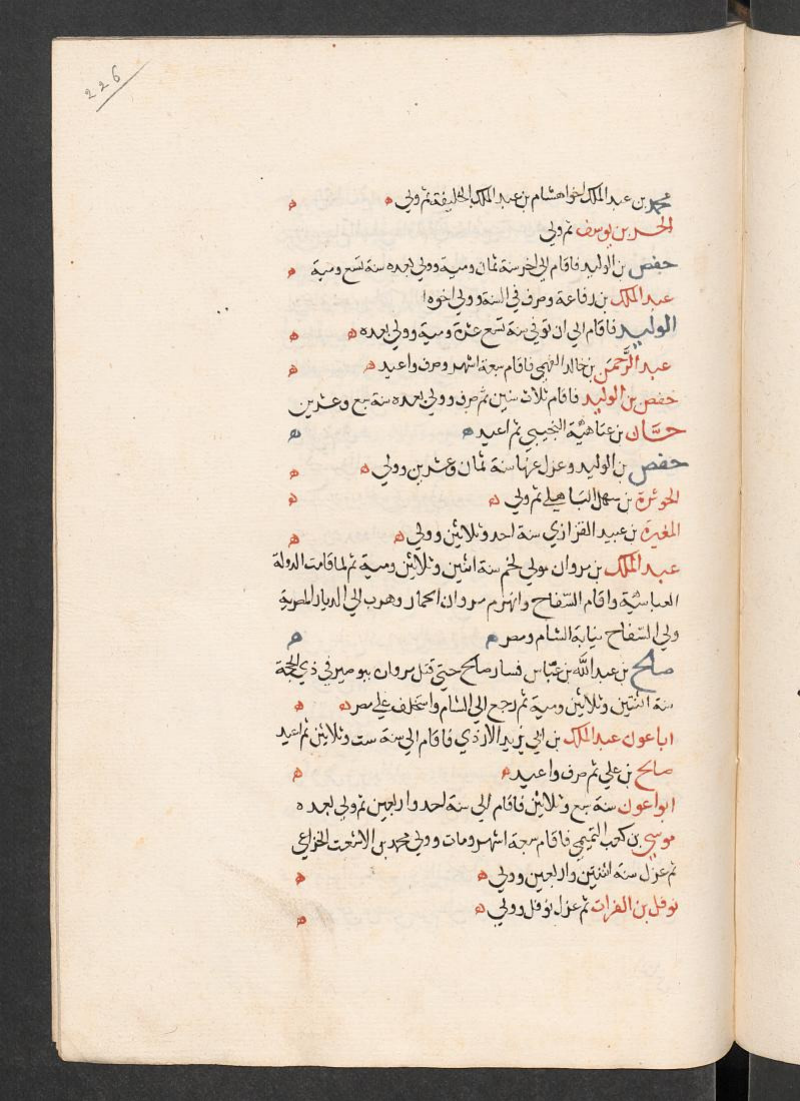 226
محمد بن عبد الملك اخوا هشام بن عبد الملك الخليفة ثم ولي ه ه
الحر بن يوسف ثم ولي
حفص بن الوليد فاقام الي اخر سنة ثمان ومية وولي بعده سنة تسع ومية ه
عبد الملك بن رفاعة وصرف في السنة وولي اخوه ا
الوليد فاقام الي ان توفي سنة تسع عشرة ومية وولي بعده ه ه
عبد الرَّحمن بن خالد الفهمي فاقام سبعة اشهر وصرف واعيد ه ه
حفص بن الوليد فاقام ثلاث سنين ثم صرف وولي بعده سنة سبع وعشرين
حسَّان بن عتاهيَّة التجيبي ثم اعيد ه ه
حفص بن الوليد وعزل عنها سنة ثمان وعشرين وولي ه ه
الحوثرة بن سهل الباهلي ثم ولي ه ه
المغيرة بن عبيد الفزازي سنة احد وثلاثين وولي ه ه
عبد الملك بن مروان مولي لخم سنة اثنين وثلاثين ومية ثم لما قامت الدولة
العباسيَّة واقام السَّفاح وانهزم مروان الحمار وهرب الي الديار المصرية
ولي السَّفاح نيابة الشام ومصر ه ه
صالح بن عبد الله بن عبَّاس فسار صالح حتي قتل مروان ببوصير في ذي الحجة
سنة اثنتين وثلاثين ومية ثم رجع الي الشام واستخلف علي مصر ه ه
اباعون عبد الملك بن ابي يزيد الازدي فاقام الي سنة ست وثلاثين ثم اعيد
صالح بن علي ثم صرف واعيد ه ه
ابواعون سنة سبع وثلاثين فاقام الي سنة احد واربعين ثم ولي بعده ه
موسي بن كعب التميمي فاقام سبعة اشهر ومات وولي محمد بن الاشعت الخزاعي
ثم عزل سنة اثنتين واربعين وولي ه ه
نوفل بن الفرات ثم عزل نوفل وولي ه ه